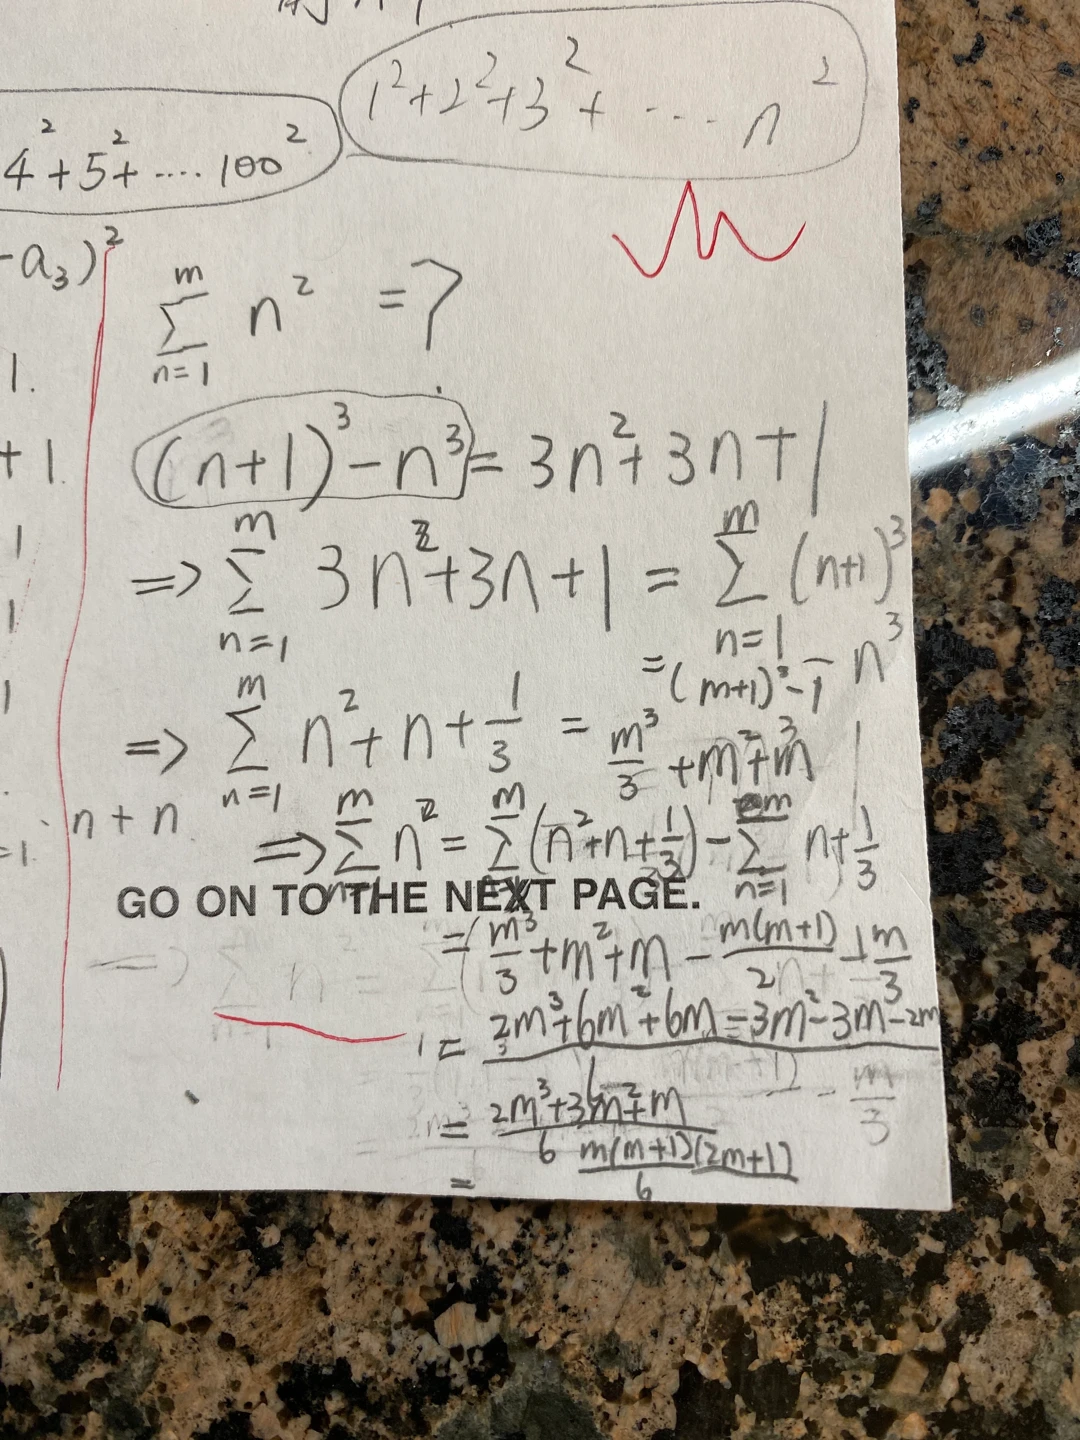 1²+2²+3²+ ···· n²
4²+5²+ ···· 100²
-a₃)²
∑_{n=1}^{m} n² = ?
1.
(n+1)³ - n³ = 3n²+3n+1
+1
⇒ ∑_{n=1}^{m} 3n²+3n+1 = ∑_{n=1}^{m} (n+1)³ - n³
1
= (m+1)³ - 1
1
⇒ ∑_{n=1}^{m} n²+n+1/3 = m³/3 + m² + m
1
n+n
⇒ ∑_{n=1}^{m} n² = ∑_{n=1}^{m} (n²+n+1/3) - ∑_{n=1}^{m} n+1/3
=1.
GO ON TO THE NEXT PAGE.
= (m³/3 + m² + m - m(m+1)/2 - m/3
= (2m³+6m²+6m-3m²-3m-2m)/6
= (2m³+3m²+m)/6
= m(m+1)(2m+1)/6